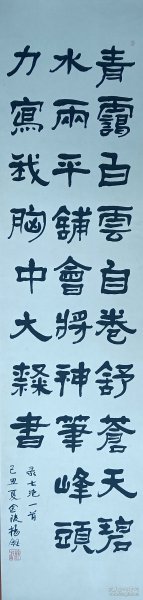 青靄白雲自卷舒蒼天碧
水兩平鋪會將神筆峰頭
力寫我胸中大隸書
录七绝一首
己丑夏金陵楊